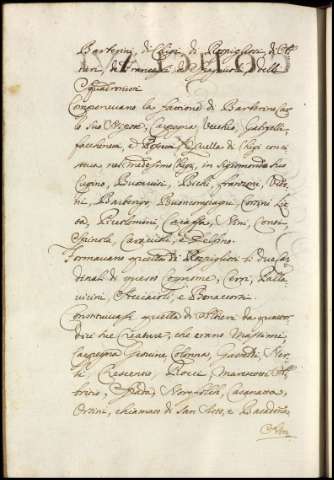 Barberini, di Chigi, di Rospigliosi, di Al-
tieri, di Francia, e di Spagna, e dello
Squadronisti
Componevano la fazione di Barberino Car-
lo suo Nipote, Carpegna Vecchio, Gabrielli
facchinetti, e Quella di Chigi consi-
steva nel medesimo Chigi, in Sigismondo suo
Cugino, Buonvisi, Bichi, franzoni, Vido-
ni, Barbarigo, Buoncompagni, Corsini
Piccolomini, Caraffa, Nini, Conti,
Spinola, Caracciolo, e Delfino.
Formavano quella di Rospigliosi li due Car-
dinali di questo Cognome, Cerri, Palla-
vicini, Acciaioli, e Bonaccorsi.
Constituivasi quella di Altieri da quattor-
dici sue Creature, che erano Massimi,
Carpegna Giovine, Colonna, Gastaldi, Ner-
li, Crescenzi, Rocci, Marescotti Al-
brizio, Spada, Norfolch, Casanatta,
Orsini, chiamato di San Sisto, e Basadonna,